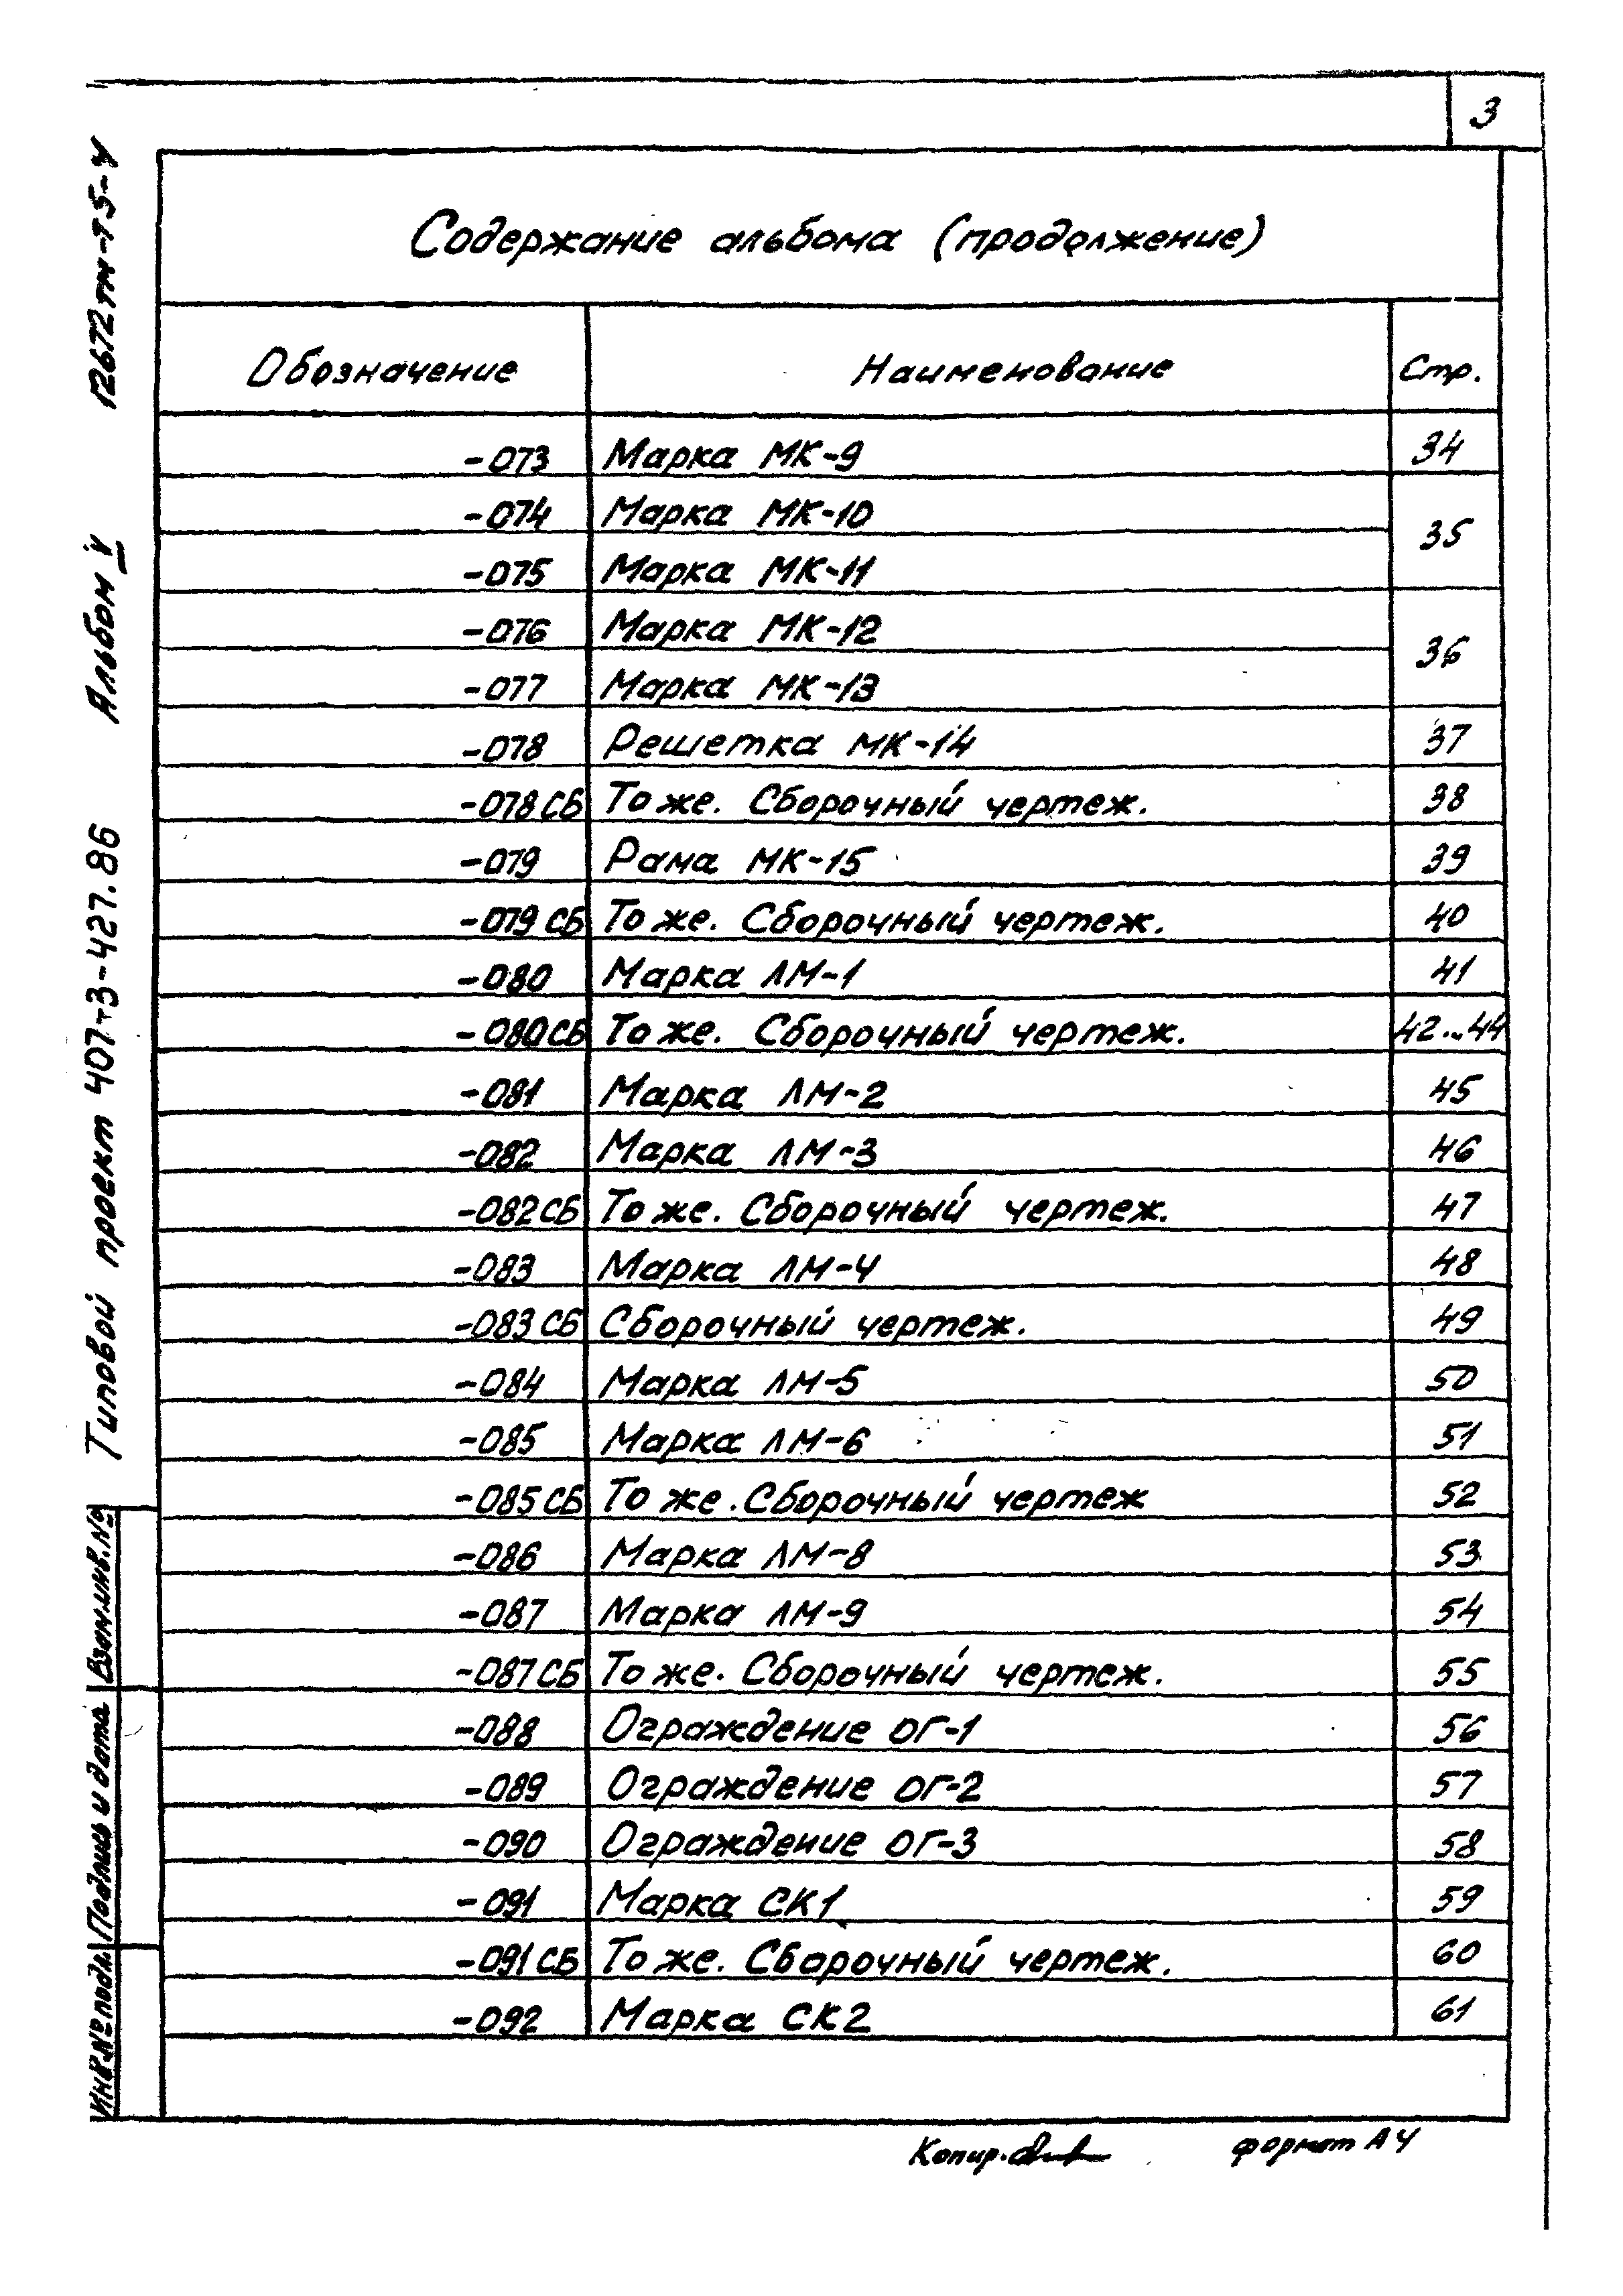 3
Содержание альбома (продолжение)
Обозначение Наименование Стр.
-073 Марка МК-9 34
-074 Марка МК-10 35
-075 Марка МК-11
-076 Марка МК-12 36
-077 Марка МК-13
-078 Решетка МК-14 37
-078 СБ То же. Сборочный чертеж. 38
-079 Рама МК-15 39
-079 СБ То же. Сборочный чертеж. 40
-080 Марка ЛМ-1 41
-080 СБ То же. Сборочный чертеж. 42...44
-081 Марка ЛМ-2 45
-082 Марка ЛМ-3 46
-082 СБ То же. Сборочный чертеж. 47
-083 Марка ЛМ-4 48
-083 СБ Сборочный чертеж. 49
-084 Марка ЛМ-5 50
-085 Марка ЛМ-6 51
-085 СБ То же. Сборочный чертеж 52
-086 Марка ЛМ-8 53
-087 Марка ЛМ-9 54
-087 СБ То же. Сборочный чертеж. 55
-088 Ограждение ОГ-1 56
-089 Ограждение ОГ-2 57
-090 Ограждение ОГ-3 58
-091 Марка СК1 59
-091 СБ То же. Сборочный чертеж. 60
-092 Марка СК2 61
Копир. формат А4
Типовой проект 407-3-427.86 Альбом V 12672тм-т5-4
Инв.№ подл. Подпись и дата Взам.инв.№